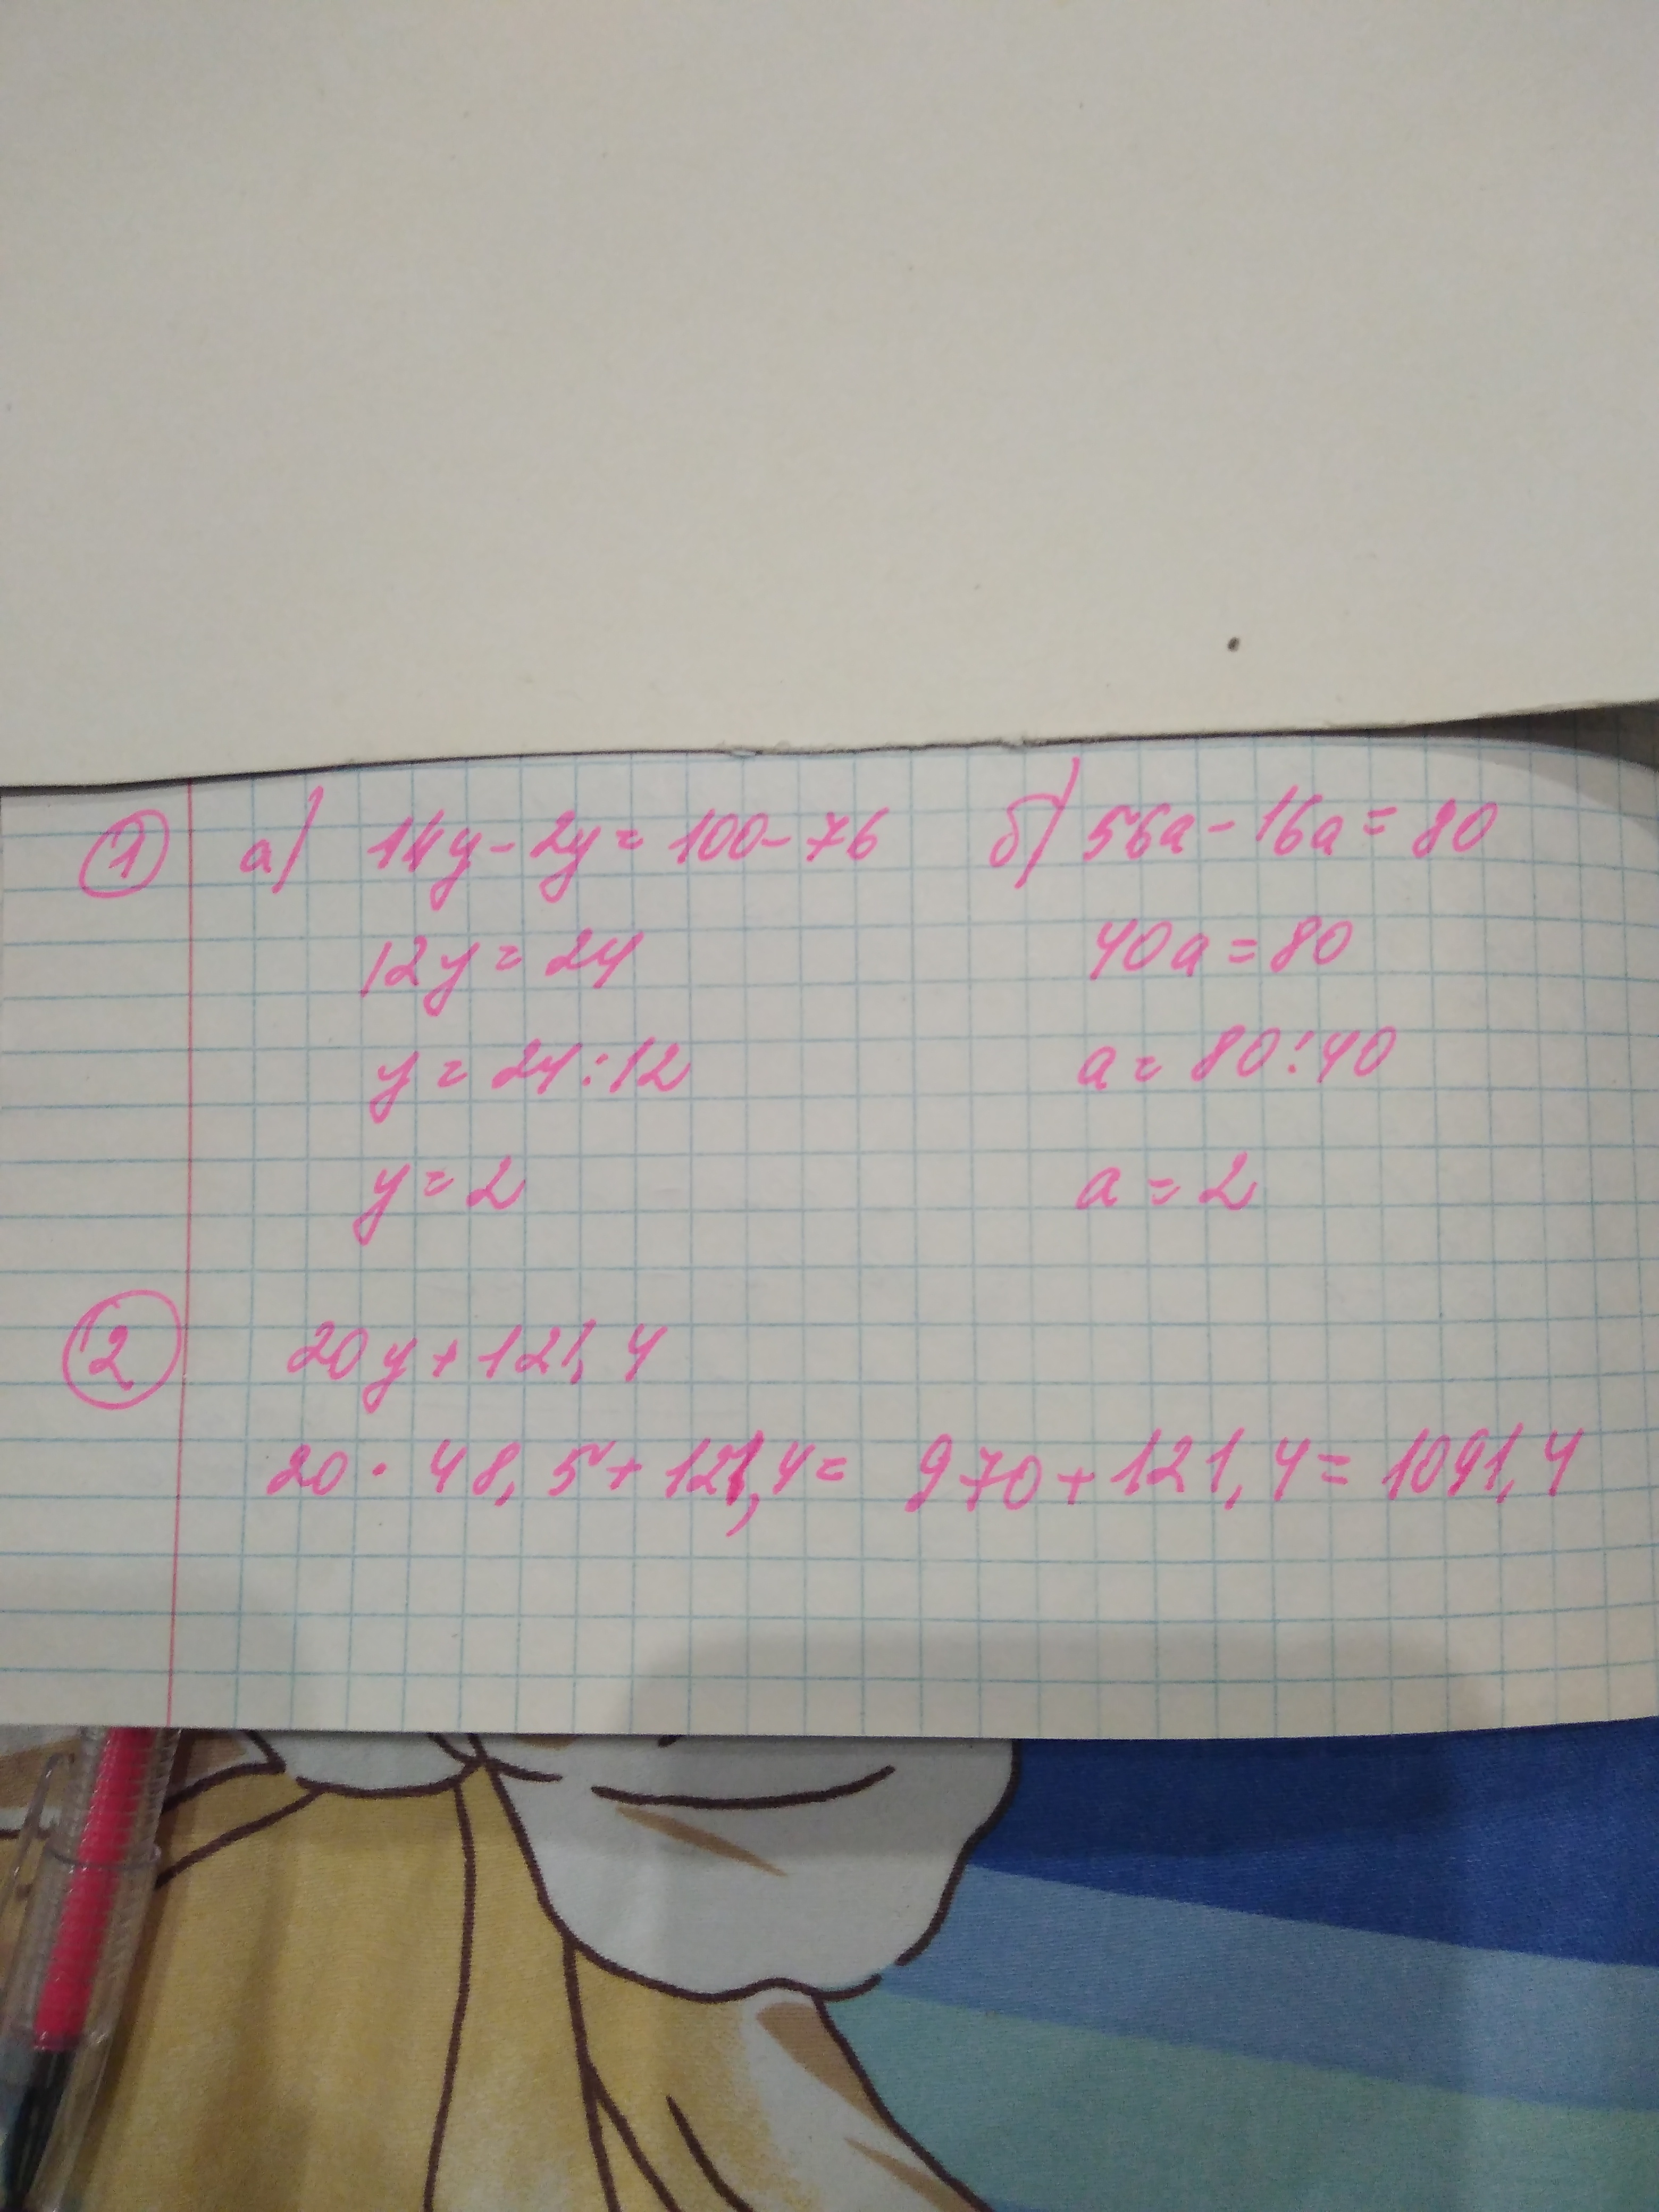 ① а) 14y - 2y = 100 - 76 б) 56a - 16a = 80
12y = 24 40a = 80
y = 24 : 12 a = 80 : 40
y = 2 a = 2
② 20y + 121,4
20 · 48,5 + 121,4 = 970 + 121,4 = 1091,4